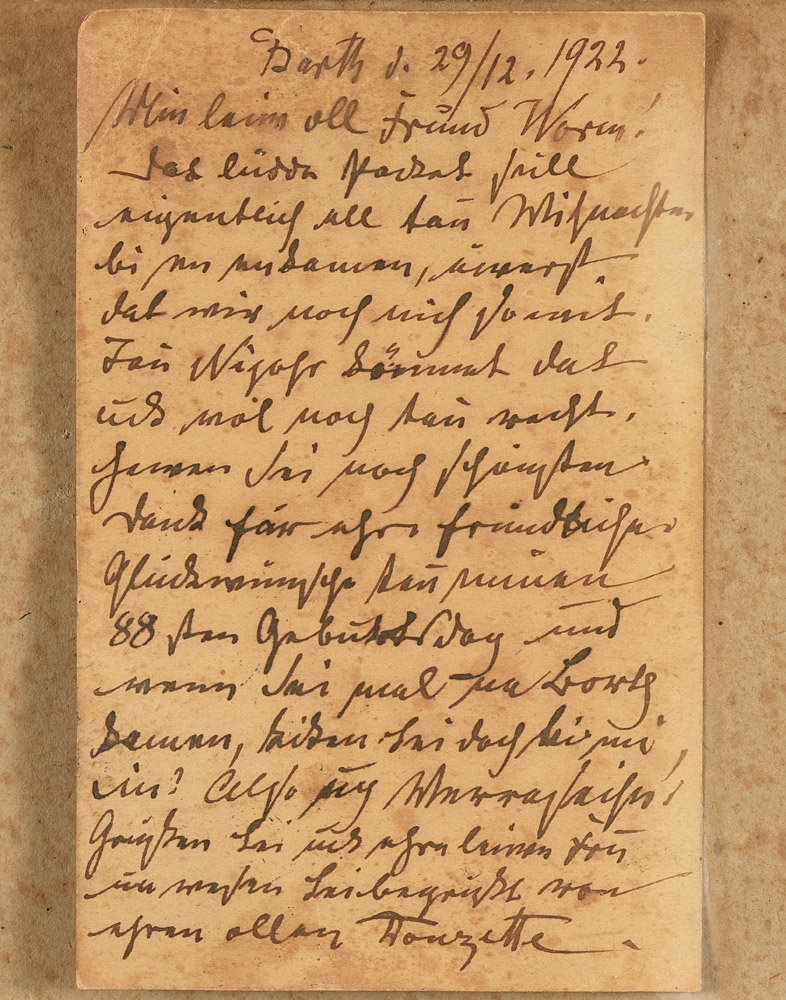 Barth d. 29/12. 1922.
Min leiw oll Fründ Worm!
Dat lüdde Packet süll
eigentlich all tau Wihnachten
bi en ankamen, äwerst
dat wir noch nich so wit.
Tau Nijohr kömmt dat
uck wol noch tau recht.
Hewen Sei noch schönsten
Dank för ehre fründlichen
Glückwünsche tau minen
88sten Gebuttsdag und
wenn Sei mal na Borth
kamen, kiken Sei doch bi mi
in! Also up Werraseihn!
Grüßen Sei uck ehre leiwe Fru
un wesen Sei begrüßt von
ehren ollen Douzette.